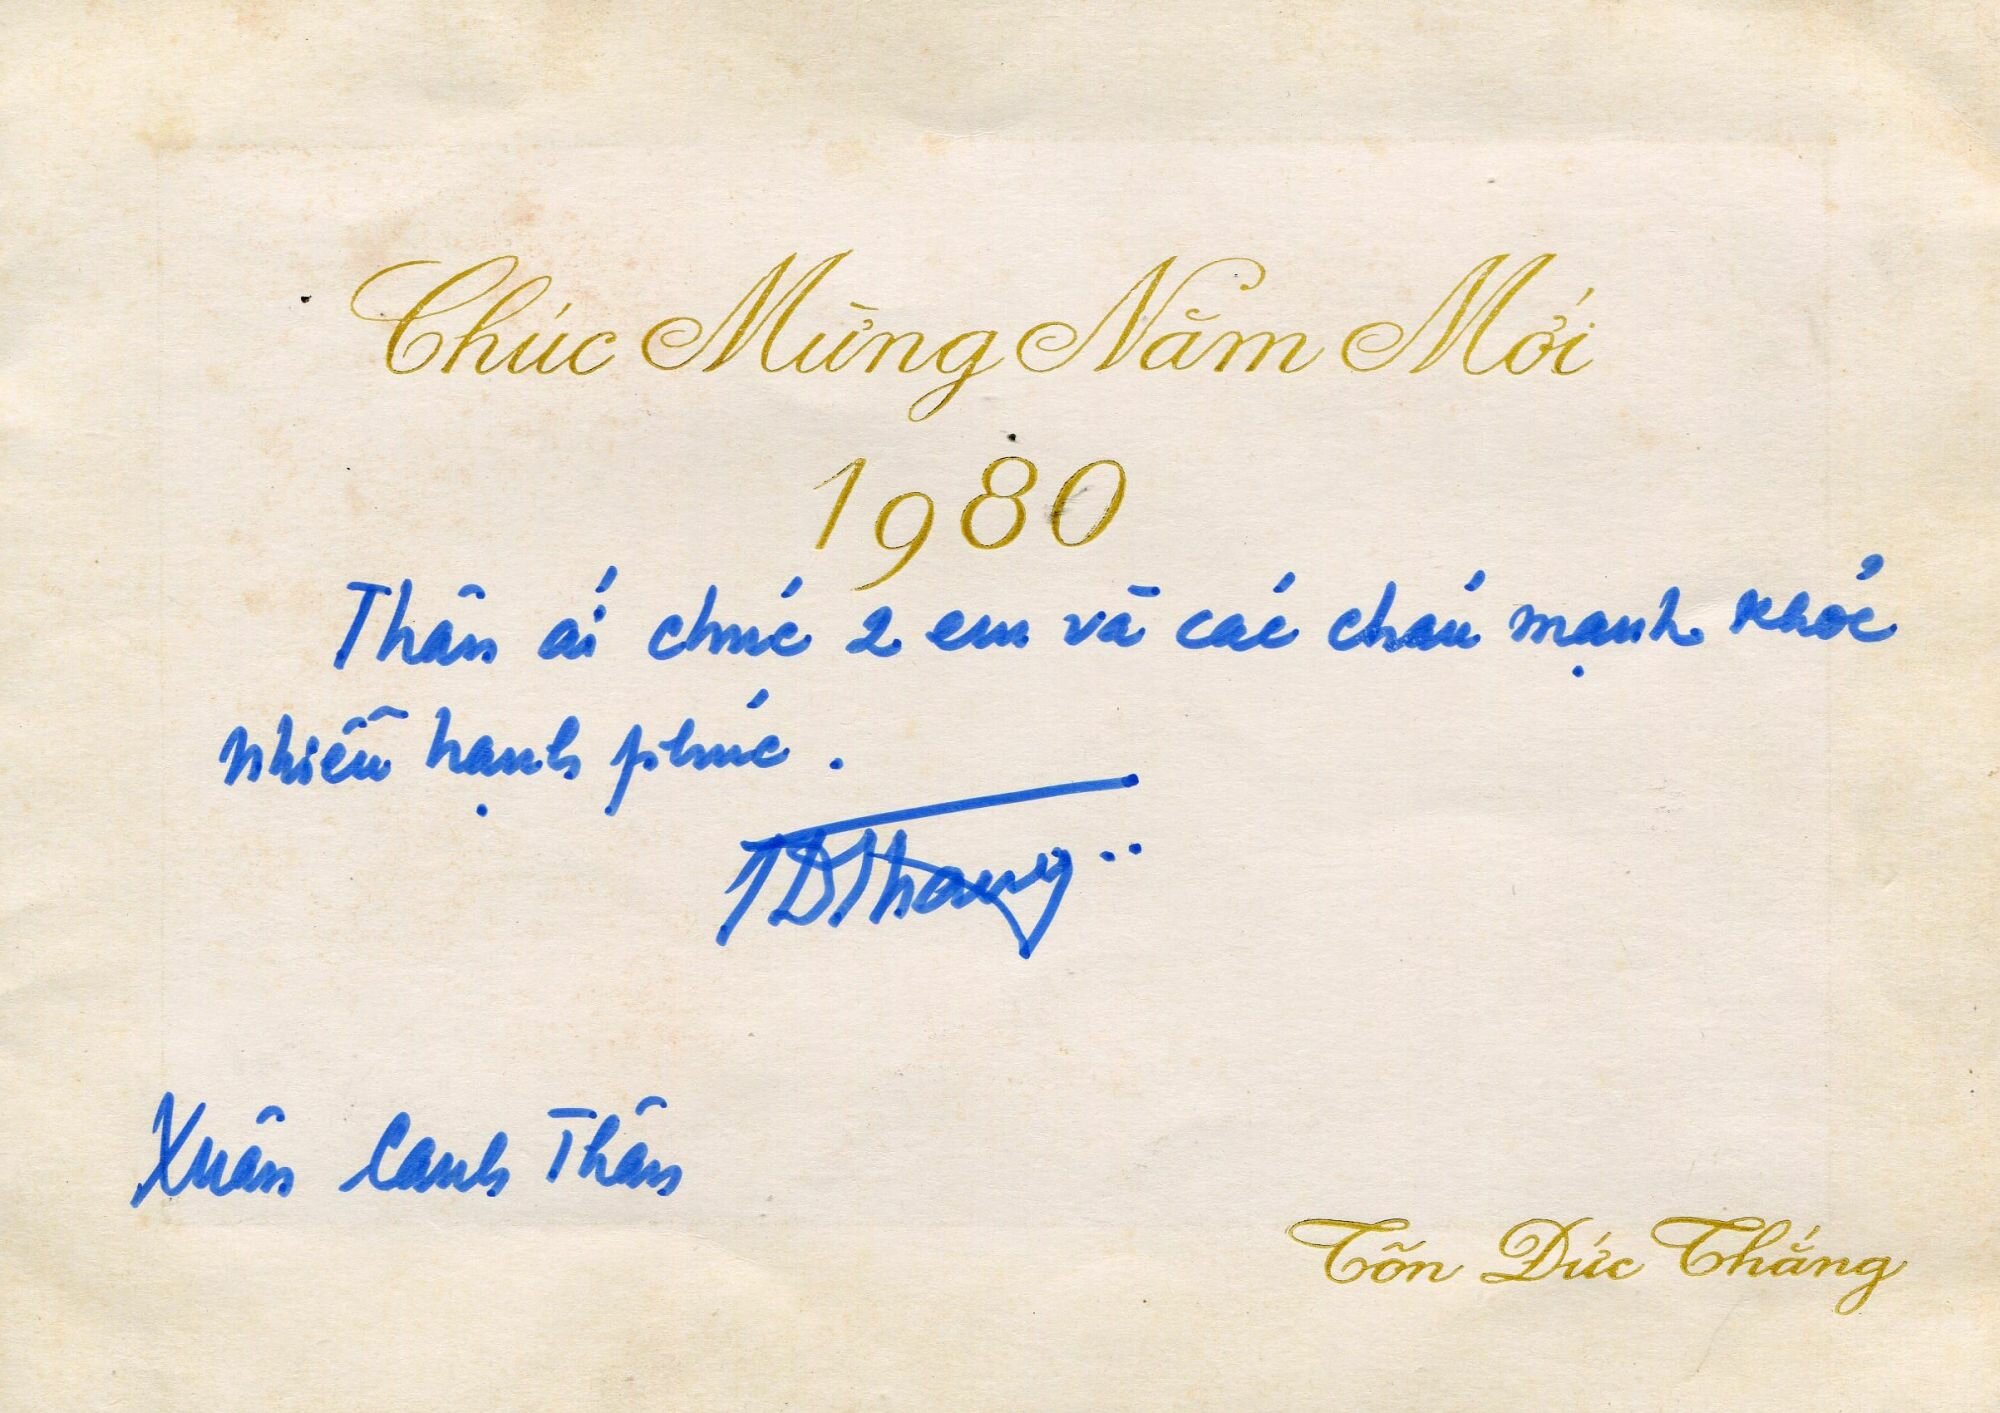 Chúc Mừng Năm Mới
1980
Thân ái chúc 2 em và các cháu mạnh khỏe
nhiều hạnh phúc.
TDThang
Xuân Canh Thân
Tôn Đức Thắng